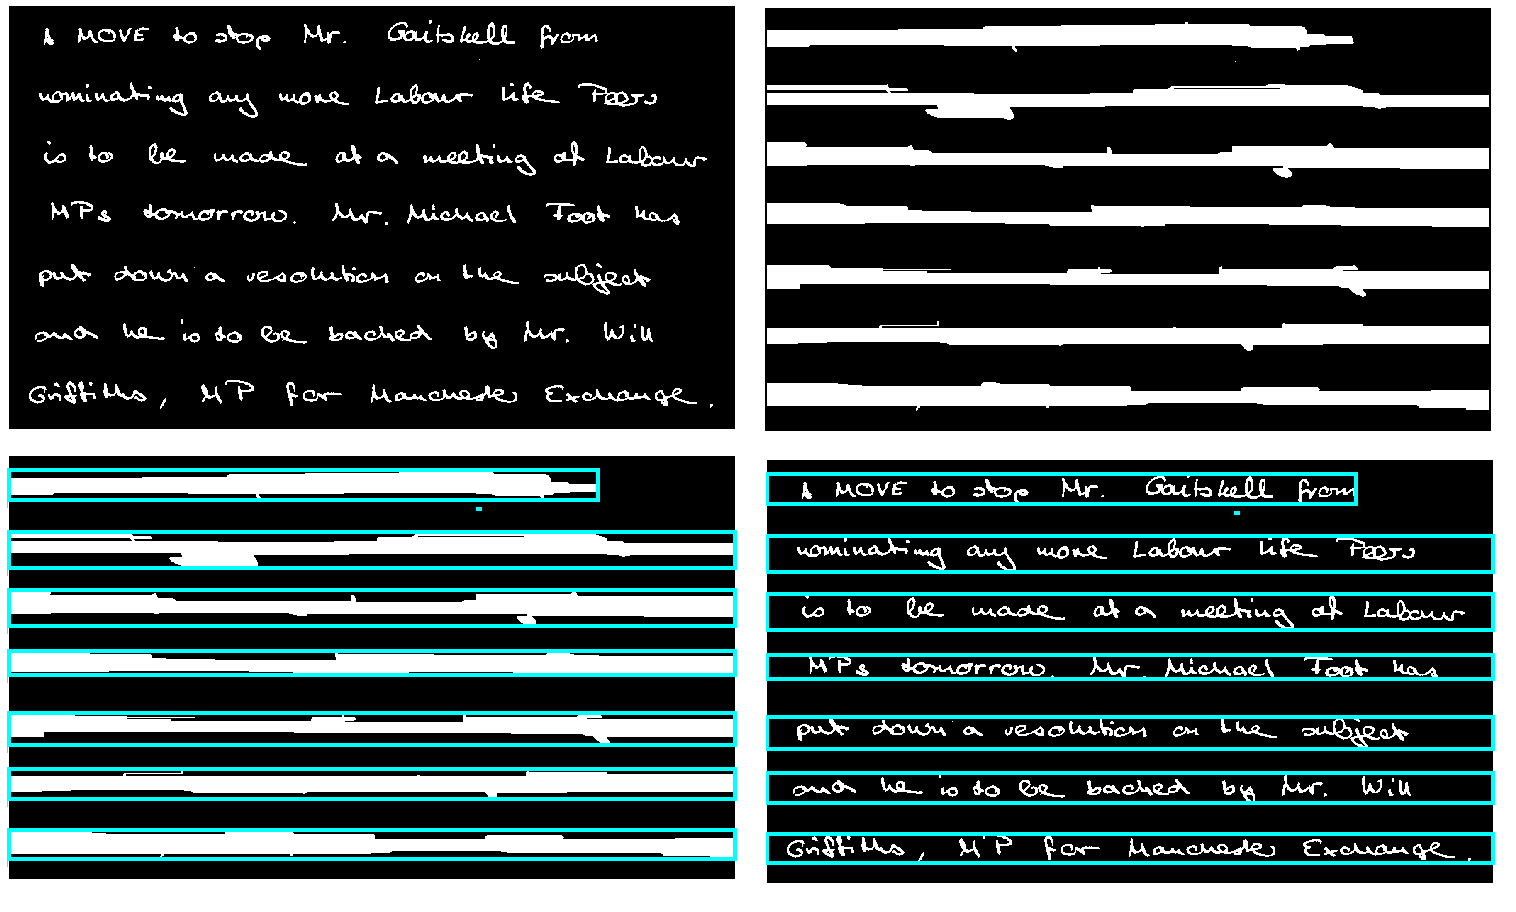 A MOVE to stop Mr. Gaitskell from
nominating any more Labour life Peers
is to be made at a meeting of Labour
MPs tomorrow. Mr. Michael Foot has
put down a resolution on the subject
and he is to be backed by Mr. Will
Griffiths, MP for Manchester Exchange.
A MOVE to stop Mr. Gaitskell from
nominating any more Labour life Peers
is to be made at a meeting of Labour
MPs tomorrow. Mr. Michael Foot has
put down a resolution on the subject
and he is to be backed by Mr. Will
Griffiths, MP for Manchester Exchange.